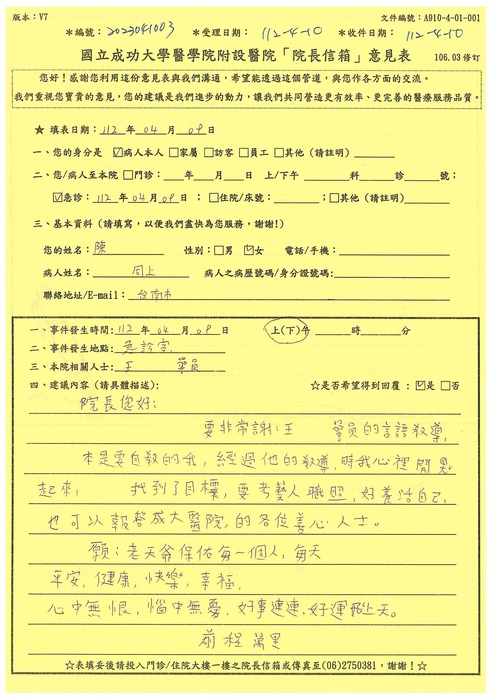 版本：V7 文件編號：A910-4-01-001
*編號：2023041003 *受理日期：112-4-10 *收件日期：112-4-10
國立成功大學醫學院附設醫院「院長信箱」意見表 106.03修訂
您好！感謝您利用這份意見表與我們溝通，希望能透過這個管道，與您作各方面的交流。
我們重視您寶貴的意見，您的建議是我們進步的動力，讓我們共同營造更有效率、更完善的醫療服務品質。
★ 填表日期：112 年 04 月 09 日
一、您的身分是 ☑病人本人 □家屬 □訪客 □員工 □其他（請註明）
二、您/病人至本院 □門診： 年 月 日 上/下午 科 診 號；
☑急診：112 年 04 月 09 日；□住院/床號： ；□其他（請註明）
三、基本資料（請填寫，以便我們盡快為您服務，謝謝!）
您的姓名：陳 性別：□男 ☑女 電話/手機：
病人姓名： 同上 病人之病歷號碼/身分證號碼：
聯絡地址/E-mail： 台南市
一、事件發生時間：112 年 04 月 09 日 上(下)午 時 分
二、事件發生地點：急診室
三、本院相關人士：王 警員
四、建議內容（請具體描述）： ☆是否希望得到回覆：☑是 □否
院長您好：
要非常謝：王 警員的言語教導，
本是要自殺的我，經過他的教導，時我心裡開

起來， 找到了目標，要考藝人職照，好養活自己，
也可以報答成大醫院，的各位善心人士。
願：老天爺保佑每一個人，每天
平安，健康，快樂，幸福，
心中無恨，惱中無憂，好事連連，好運飛上天。
前程萬里
☆表填妥後請投入門診/住院大樓一樓之院長信箱或傳真至(06)2750381，謝謝！☆